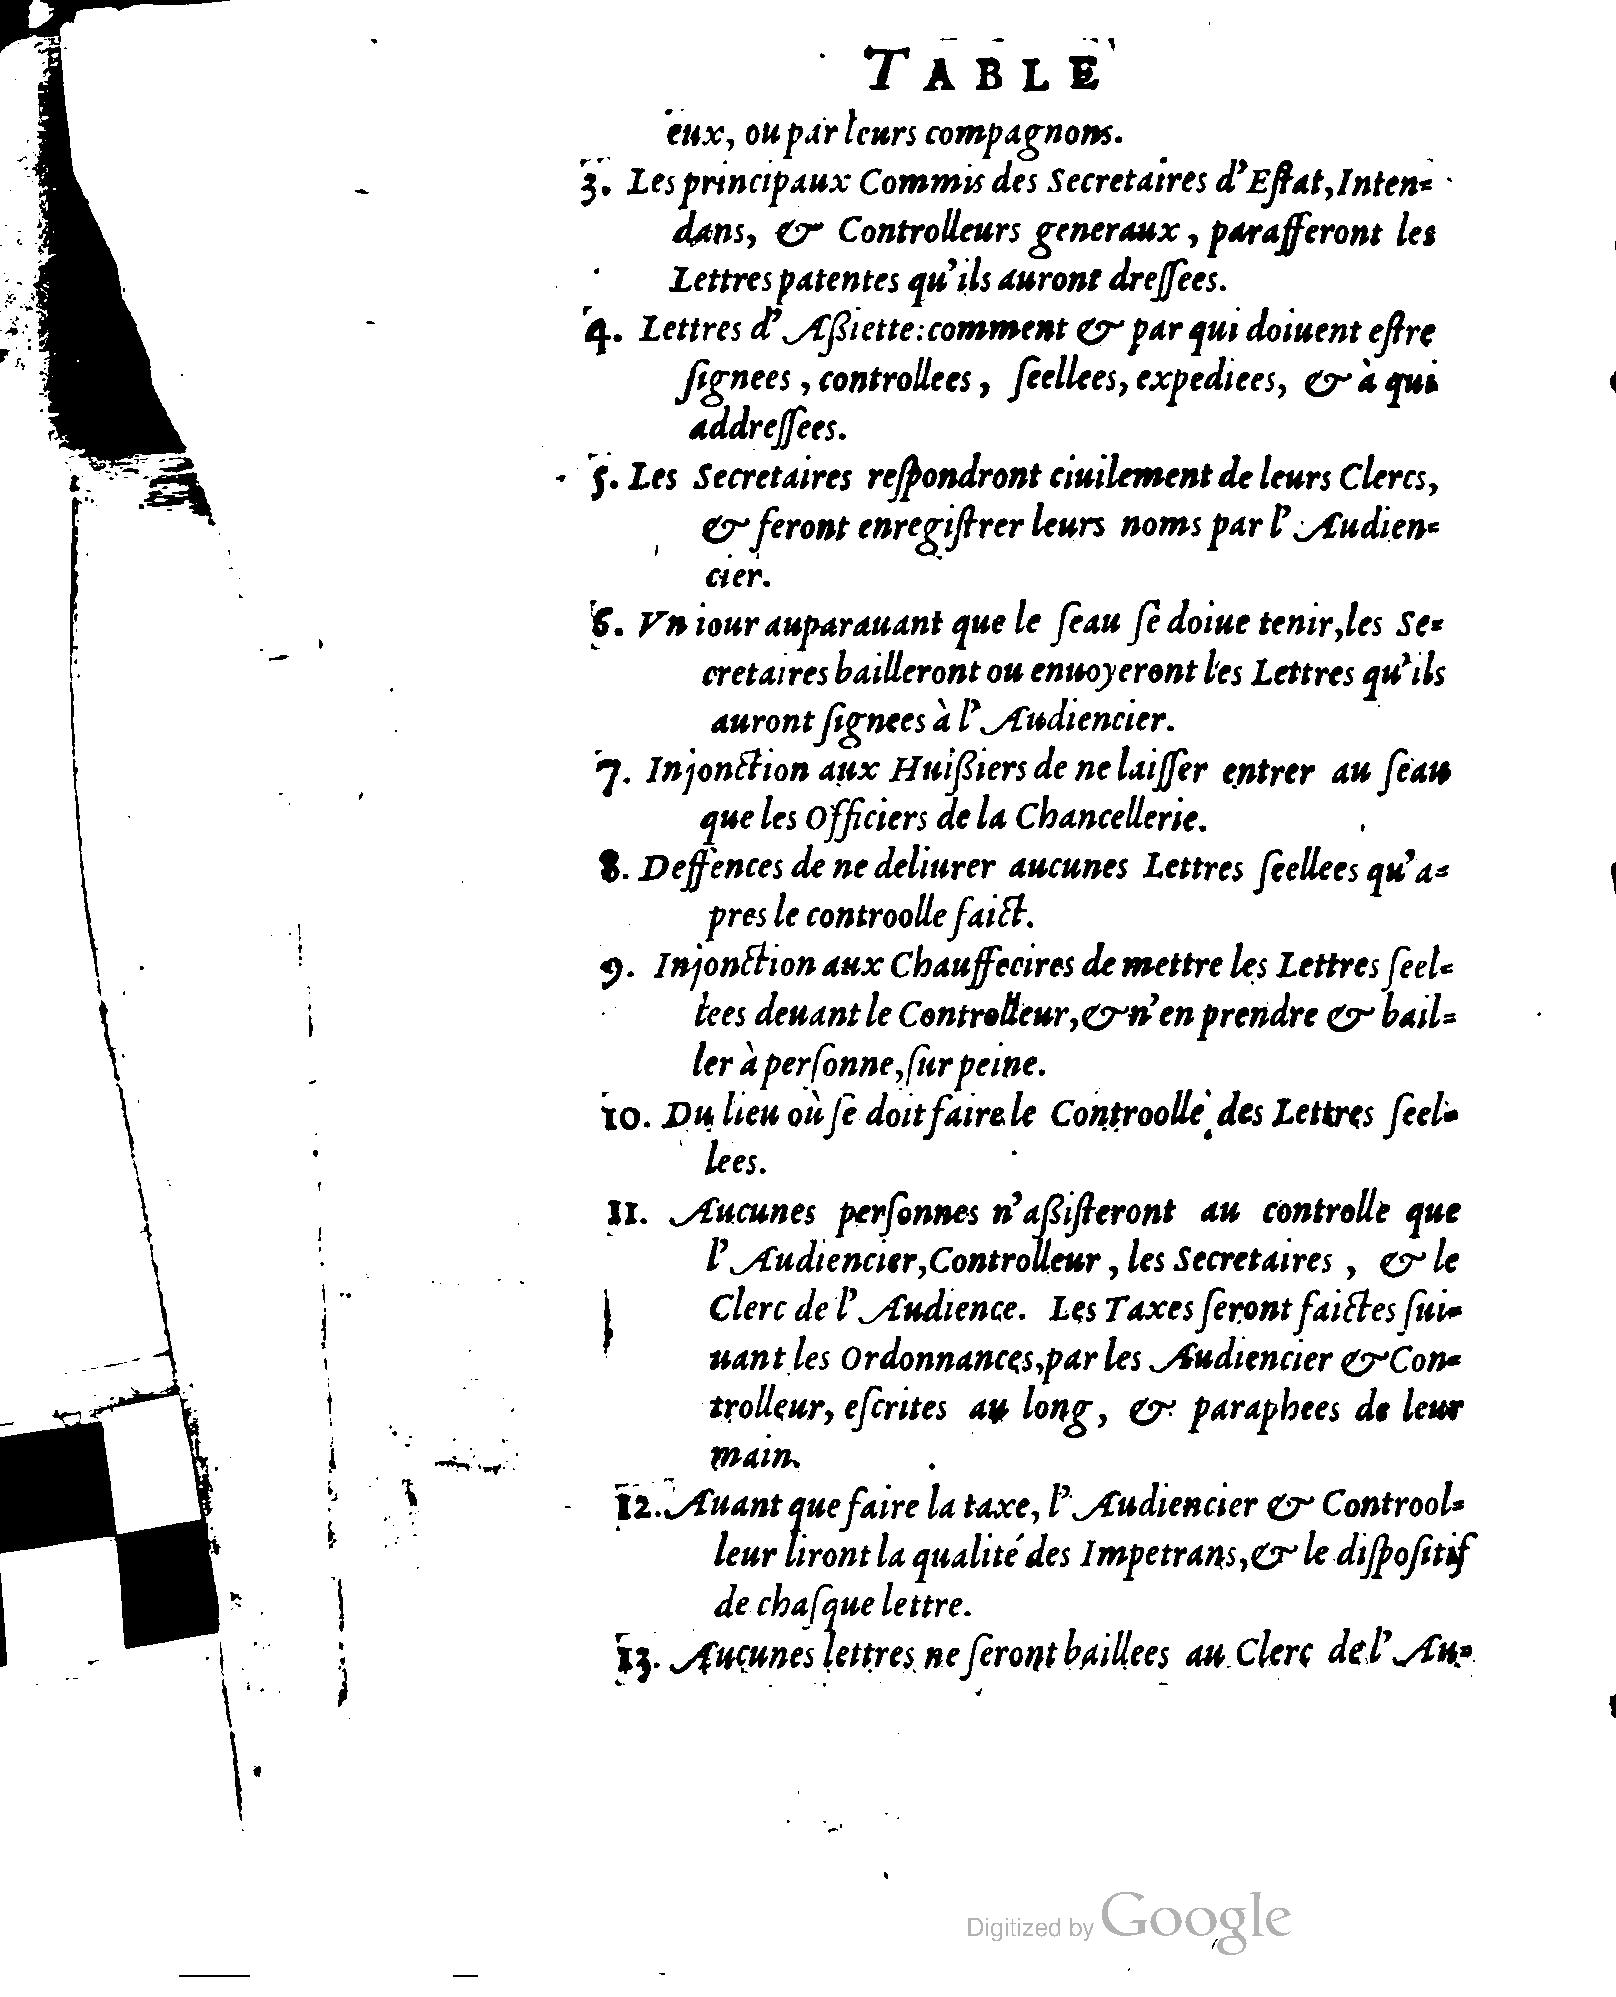 TABLE
eux, ou par leurs compagnons.
3. Les principaux Commis des Secretaires d'Eſtat, Inten-
dans, & Controlleurs generaux, paraſferont les
Lettres patentes qu'ils auront dreſſees.
4. Lettres d'Aßiette: comment & par qui doiuent eſtre
ſignees, controllees, ſeellees, expediees, & à qui
addreſſees.
5. Les Secretaires reſpondront ciuilement de leurs Clercs,
& feront enregiſtrer leurs noms par l'Audien-
cier.
6. Vn iour auparauant que le ſeau ſe doiue tenir, les Se-
cretaires bailleront ou enuoyeront les Lettres qu'ils
auront ſignees à l'Audiencier.
7. Injonction aux Huißiers de ne laiſſer entrer au ſeau
que les Officiers de la Chancellerie.
8. Deffences de ne deliurer aucunes Lettres ſeellees qu'a-
pres le controolle faict.
9. Injonction aux Chauffecires de mettre les Lettres ſeel-
lees deuant le Controlleur, & n'en prendre & bail-
ler à perſonne, ſur peine.
10. Du lieu où ſe doit faire le Controolle des Lettres ſeel-
lees.
11. Aucunes perſonnes n'aßiſteront au controlle que
l'Audiencier, Controlleur, les Secretaires, & le
Clerc de l'Audience. Les Taxes ſeront faictes ſui-
uant les Ordonnances, par les Audiencier & Con-
trolleur, eſcrites au long, & paraphees de leur
main.
12. Auant que faire la taxe, l'Audiencier & Controol-
leur liront la qualité des Impetrans, & le diſpoſitif
de chaſque lettre.
13. Aucunes lettres ne ſeront baillees au Clerc de l'Au-
Digitized by Google